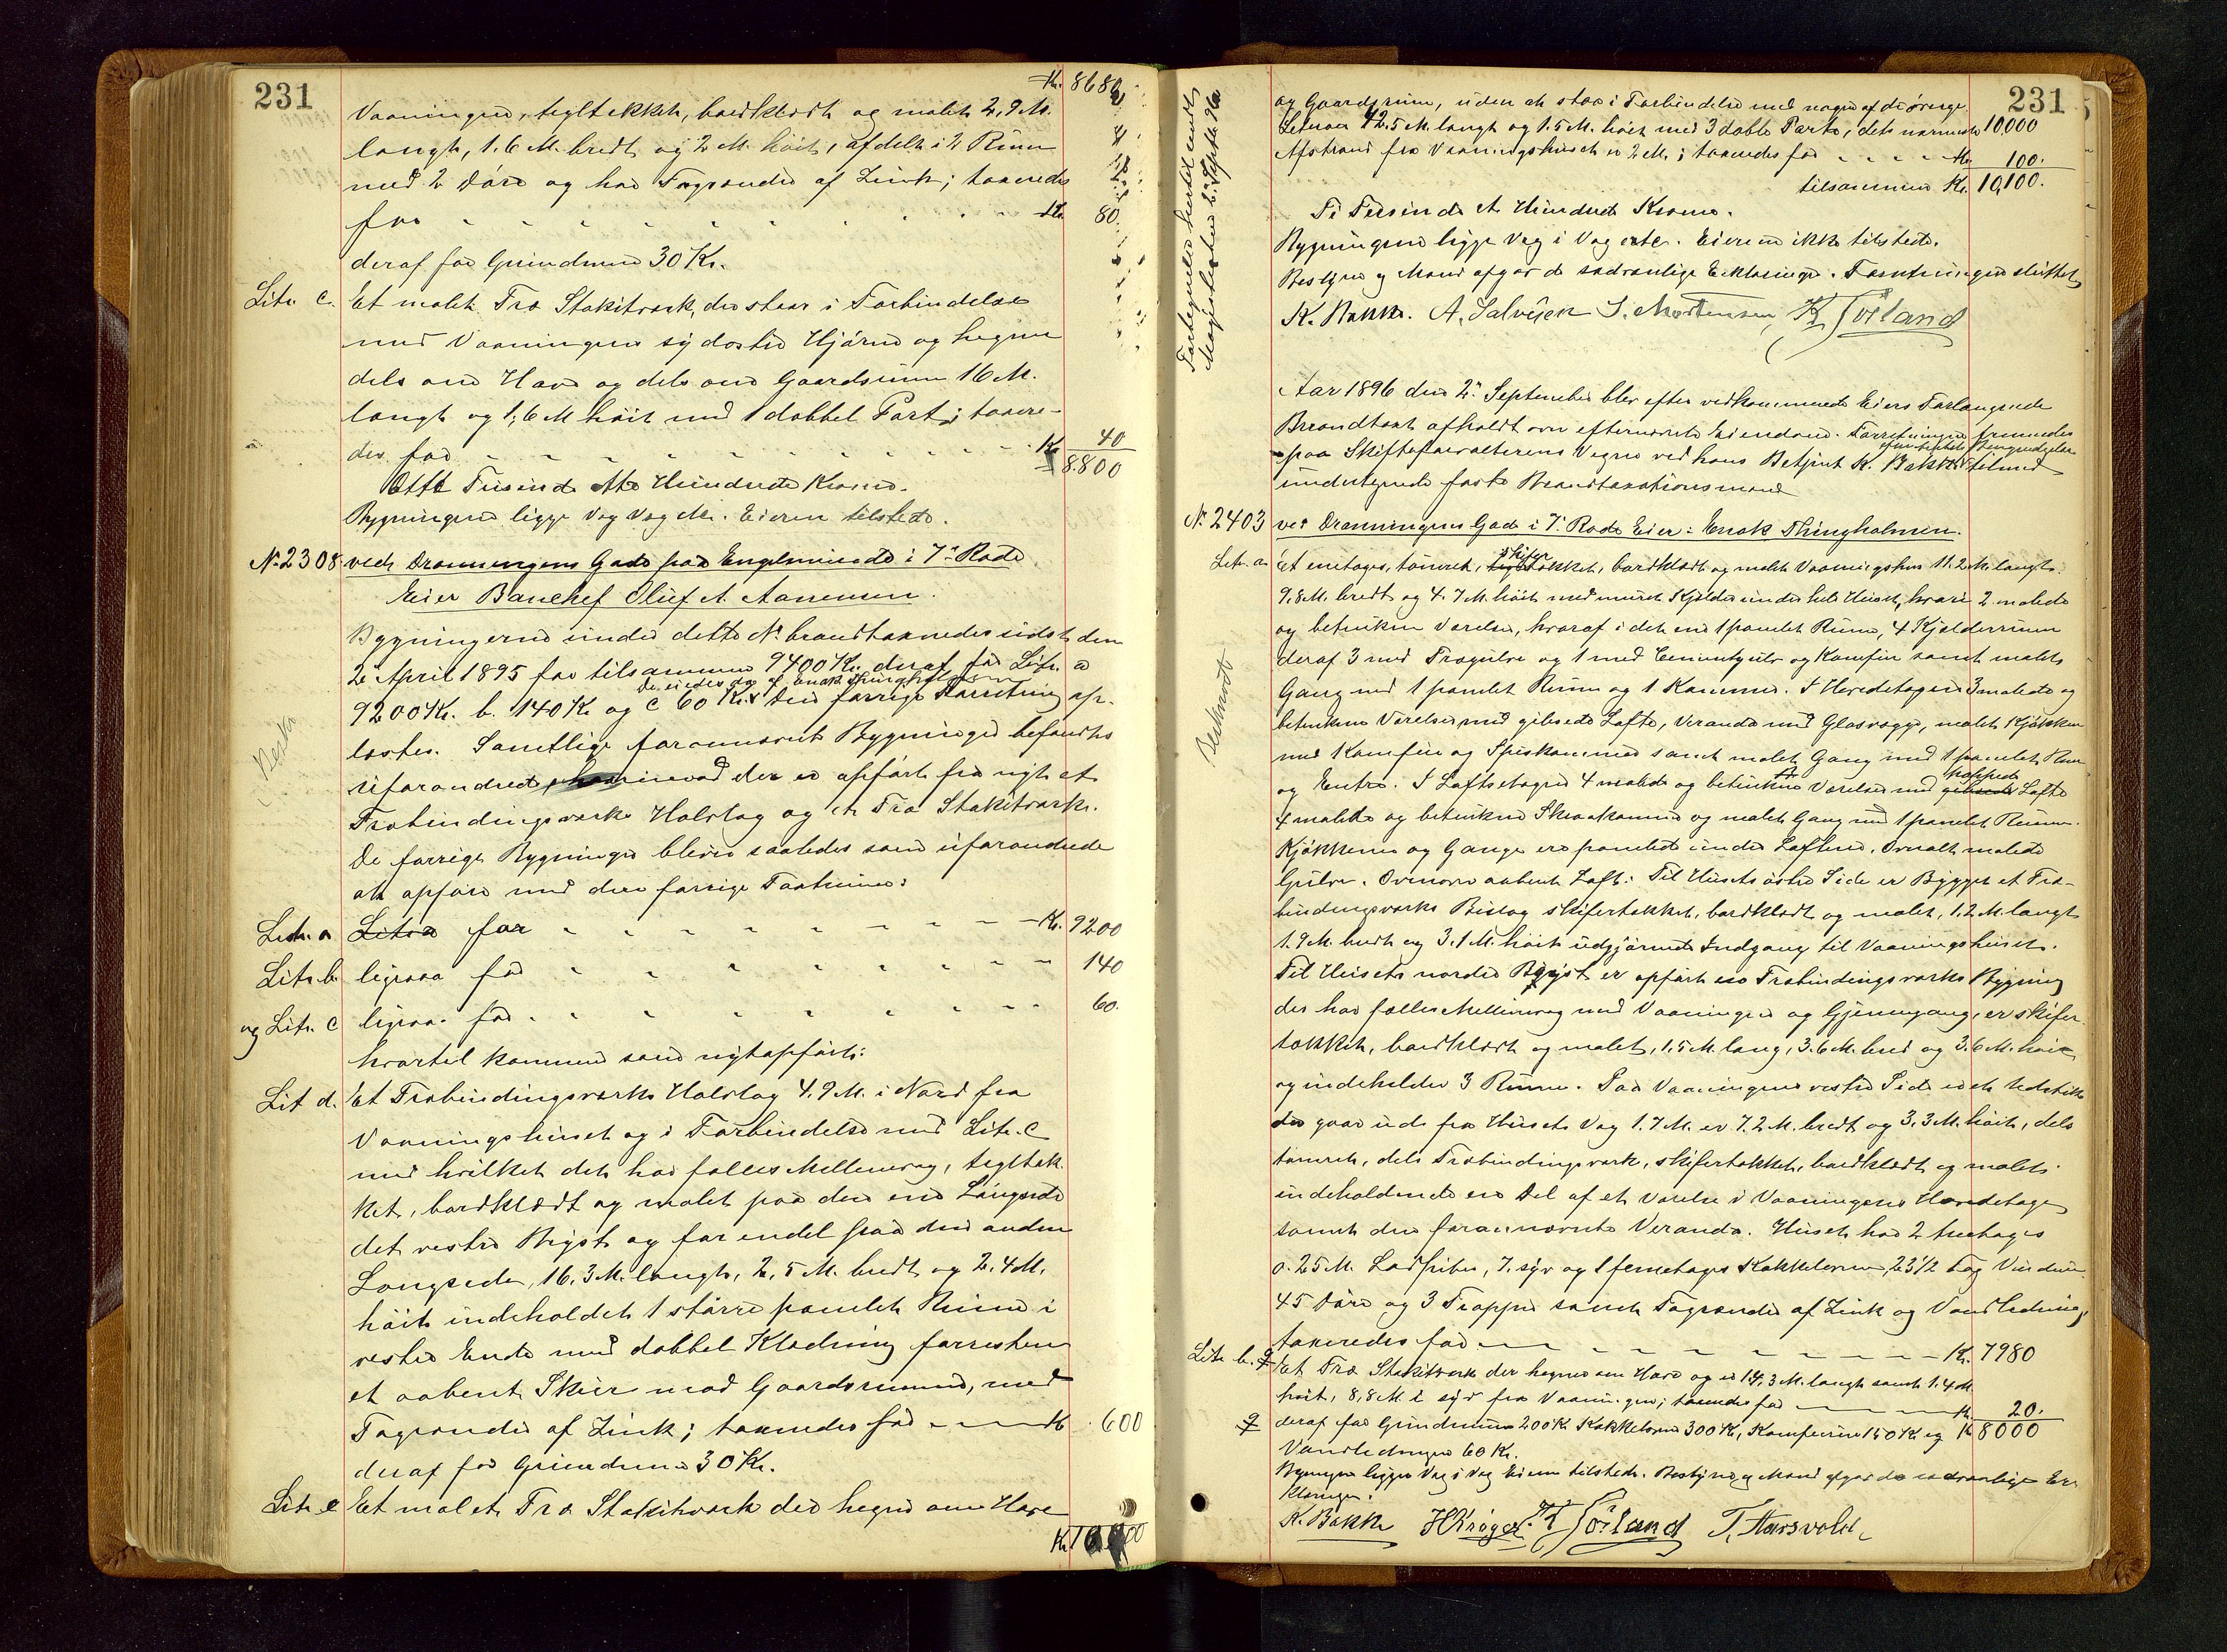 231
Kr. 8680
Vaaningen, tegltækket, bordklædt og malet 2,9 M.
langt, 1.6 M. bredt og 2 M. höit, afdelt i 2 Rum
med 2 Döre og har Tagrender af Zink; taxeredes
for - - - Kr. 80.
deraf for Grundmur 30 Kr.
Litr. c. Et malet Træ Stakitværk, der staar i Forbindelse
med Vaaningens sydöstre Hjörne og hegner
dels om Have og dels om Gaardsrum 16 M.
langt og 1,6 M höit med 1 dobbel Port; taxere-
des for - - - Kr. 40
8.800
Otte Tusinde otte Hundrede Kroner.
Bygningerne ligge Væg Væg etc. Eieren tilstede.
No. 2308 ved Dronningens Gade paa Engelsminde i 7de Rode
Eier Banchef Oluf A. Aanensen.
Bygningerne under dette No. brandtaxeredes sidst den
2 April 1895 for tilsammen 9400 Kr. deraf for Litr. a
De eiedes da af Enok Thingholmen
9200 Kr. b. 140 Kr. og c 60 Kr. Den forrige Forretning op-
læstes. Samtlige forannævnte Bygninger befandtes
uforandrede, der er opfört fra nyt et
Træbindingsværks Halvtag og et Træ Stakitværk.
De forrige Bygninger bliver saaledes som uforandrede
at opföre med den forrige Taxtsum:
Litr. a Litra for - - - Kr. 9200
Litr. b. ligesaa for - - - 140
og Litr. c ligesaa for - - - 60.
hvortil kommer som nytopfört:
Lit d. Et Træbindingsværks Halvtag 4.9 M. i Nord fra
Vaaningshuset og i Forbindelse med Litr. c
med hvilket det har fælles Mellemvæg, tegltæk-
ket, bordklædt og malet paa den ene Langside
det vestre Bryst og for endel paa den anden
Langside, 16.3 M. langt, 2,5 M. bredt og 2.4 M.
höit indeholdet 1 större panelet Rum i
vestre Ende med dobbel Klædning forresten
et aabent Skur mod Gaardsrummet, med
Tagrender af Zink; taxeredes for - - - Kr. 600
deraf for Grundmur 30 Kr.
Litr. e Et malet Træ Stakitværk der hegner om Have
Kr.
231
og Gaardsrum, uden at staa i Forbindelse med nogen af de övrige
Litraer 42.5 M. langt og 1.5 M. höit med 3 doble Porte, dets nærmeste 10,000
Afstand fra Vaaningshuset er 2 M.; taxeredes for - - - Kr. 100.
tilsammen Kr. 10,100.
Ti Tusinde et Hundrede Kroner.
Bygningerne ligge Væg i Væg etc. Eieren ikke tilstede.
Bestyrer og Mænd afgav de sædvanlige Erklæringer. Forretningen sluttet
K. Bakke. A. Salvesen S. Mortensen, K Törland
Fortegnelse hertil sendt
Magistraten 2. Septb. 96
Aar 1896 den 2. September blev efter vedkommende Eiers Forlangende
Brandtaxt afholdt over efternævnte Eiendom. Forretningen fremmedes
paa Skifteforvalterens Vegne ved hans Betjent K. Bakke tilmed
undertegnede faste Brandtaxationsmænd
No. 2403 ved Dronningens Gade i 7. Rode Eier: Enok Thingholmen.
Litr. a. Et enetages, tömret, skifertækket, bordklædt og malet Vaaningshus 11.2 M. langt
9,8 M. bredt og 4.7 M. höit med muret Kjelder under hele Huset, hvori 2 malede
og betrukne Værelser, hvoraf i det ene 1 panelet Rum, 4 Kjelderrum
deraf 3 med Trægulve og 1 med Cementgulv og Komfur samt malet
Gang med 1 panelet Rum og 1 Kammer. I Hovedetagen 3 malede og
betrukne Værelser med gibsede Lofte, Veranda med Glasvægge, malet Kjökken
med 1 Komfur og Spiskammer samt malet Gang med 1 panelet Rum
og Entre. I Loftsetagen 4 malede og betrukne Værelser med pappede Lofte
4 malede og betrukne Skraakammer og malet Gang med 1 panelet Rum.
Kjökkener og Gange ere panelede under Lofterne. Overalt malede
Gulve. Ovenover aabent Loft. Til Husets östre Side er Bygget et Træ-
bindingsværks Bislag skifertækket, bordklædt og malet, 1,2 M. langt
1.9 M. bredt og 3.1 M. höit udgjörende Indgang til Vaaningshuset.
Til Husets nordre Bryst er opfört en Træbindingsværks Bygning
der har fælles Mellemvæg med Vaaningen og Gjennemgang, er skifer-
tækket, bordklædt og malet, 1,5 M. lang, 3.6 M. bred og 3.6 M. höi
og indeholder 3 Rum. Paa Vaaningens vestre Side er et Udstikk
der gaar ud fra Husets Væg 1.7 M. er 7.2 M. bredt og 3,3 M. höit, dels
tömret, dels Træbindingsværk, skifertækket, bordklædt og malet
indeholdende en Del af et Værelse i Vaaningens Hovedetage
samt den forannævnte Veranda. Huset har 2 treetages
0.25 M. Ladpiber, 7. syv og 1 femetages Kakkelovne, 23 1/2 Fag Vinduer
45 Döre og 3 Trapper samt Tagrender af Zink og Vandledning,
taxeredes for - - - Kr. 7980
Litr. b. Et Træ Stakitværk der hegner om Have og er 14,3 M. langt samt 1.4 M.
höit, 8,8 M. i syd fra Vaaningen; taxeredes for - - - Kr. 20.
deraf for Grundmur 200 Kr. Kakkelovne 300 Kr, Komfurene 150 Kr og Kr 8000
Vandledningen 60 Kr.
Bygningen ligger Væg i Væg Eieren tilstede. Bestyrer og Mænd afgav de sædvanlige Er-
klæringer.
K. Bakke HKröger. K Törland T. Aarsvold